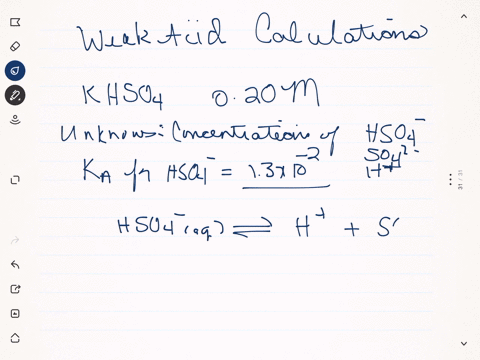 Weak Acid Calculations
KHSO4 0.20M
Unknows: Concentrations of HSO4⁻
SO4²⁻
KA for HSO4⁻ = 1.3x10⁻² H⁺
HSO4⁻(aq) ⇌ H⁺ + S